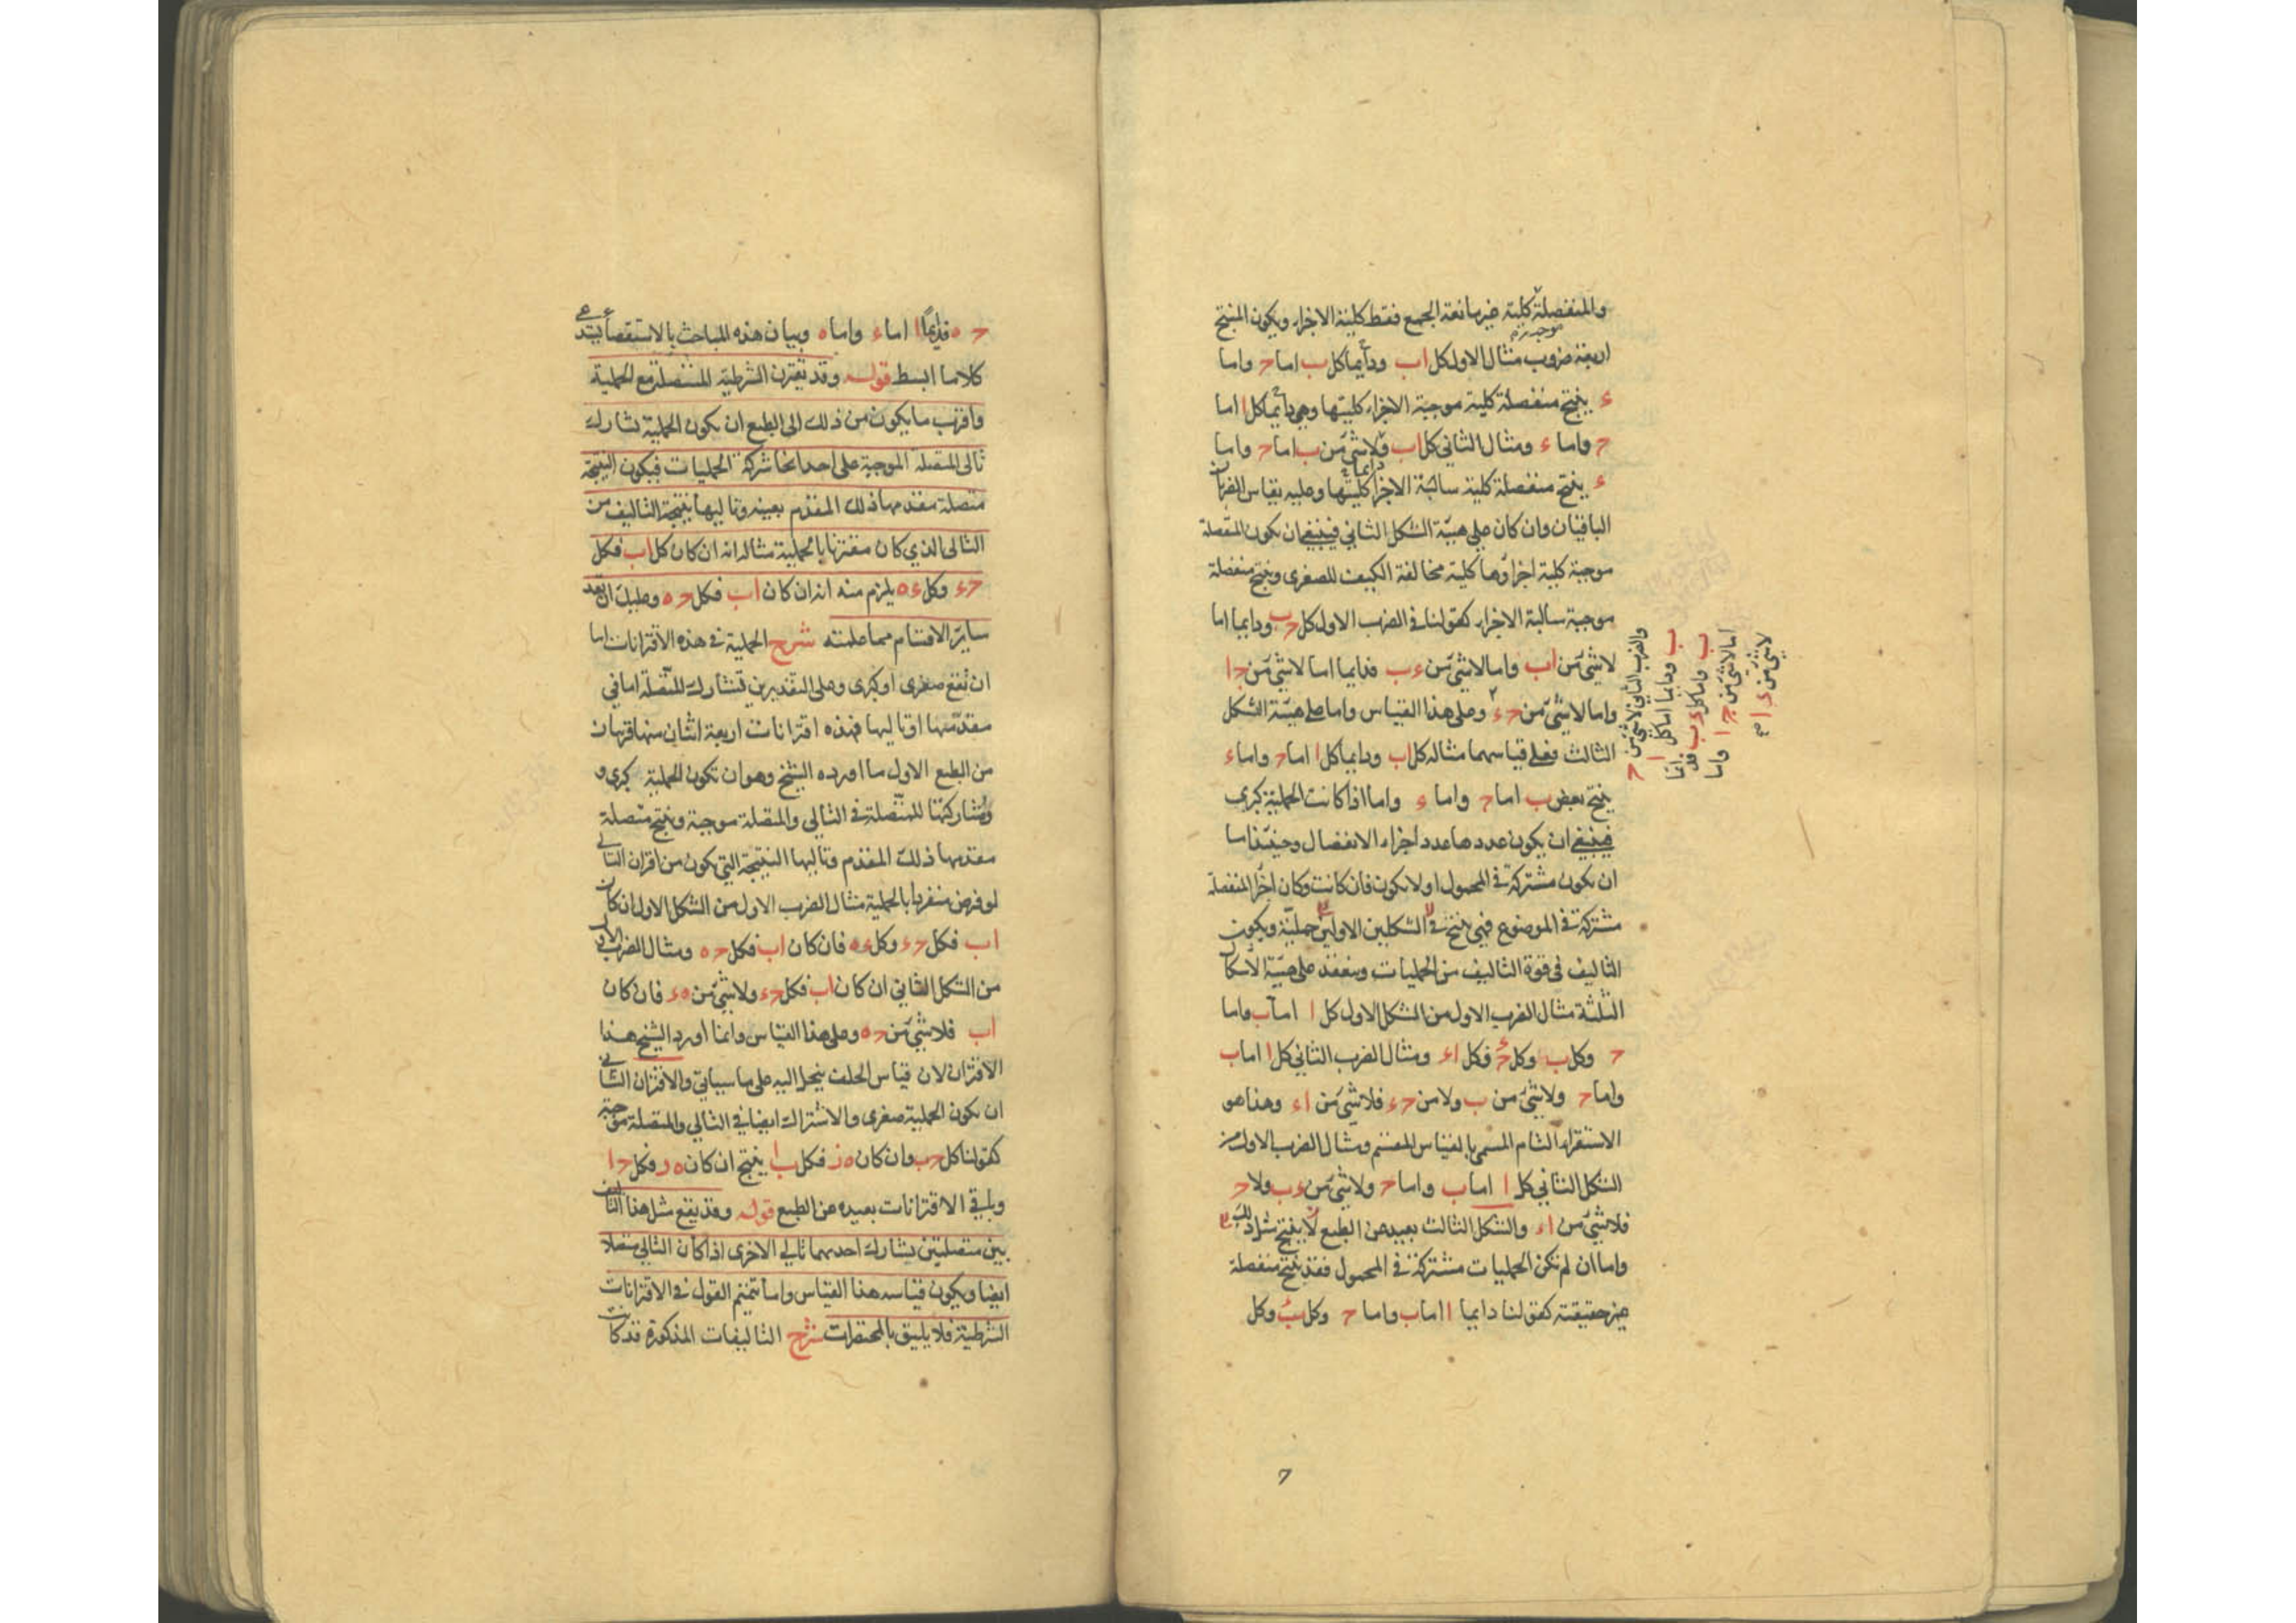 والمنفصلة كلية غير مانعة الجمع فقط كلية الاجزاء ويكون المنتج
موجبة
اربعة ضروب مثال الاول كل اب ودايما كل ب اما ح واما
ء ينتج منفصلة كلية موجبة الاجزاء كليتها وهي دايما كل ا اما
ح واما ء ومثال الثاني كل اب ولا شئ من ب اما ح واما
ء ينتج منفصلة كلية سالبة الاجزاء كليتها وعليه يقاس الضربان
الباقيان وان كان على هيئة الشكل الثاني فينبغي ان يكون المنفصلة
موجبة كلية اجزاؤها كلية مخالفة الكيف للصغرى وينتج منفصلة
موجبة سالبة الاجزاء كقولنا في الضرب الاول كل ح ب ودايما اما
لا شئ من اب واما لا شئ من ء ب فدايما اما لا شئ من ح ا
واما لا شئ من ح ء وعلى هذا القياس واما على هيئة الشكل
الثالث فعلى قياسهما مثاله كل اب ودايما كل ا اما ح واما ء
ينتج بعض ب اما ح واما ء واما اذا كانت الحملية كبرى
فينبغي ان يكون عددها عدد اجزاء الانفصال وحينئذ اما
ان يكون مشتركة في المحمول اولا يكون فان كانت وكان اجزاء المنفصلة
مشتركة في الموضوع فهي ينتج في الشكلين الاولين حملية ويكون
التاليف في قوة التاليف من الحمليات وينعقد على هيئة الاشكال
الثلثة مثال الضرب الاول من الشكل الاول كل ا اما ب واما
ح وكل ب وكل ح ء فكل اء ومثال الضرب الثاني كل ا اما ب
واما ح ولا شئ من ب ولا من ح ء فلا شئ من اء وهذا هو
الاستقراء التام المسمى بالقياس المقسم ومثال الضرب الاول من
الشكل الثاني كل ا اما ب واما ح ولا شئ من ء ب ولا ح
فلا شئ من اء والشكل الثالث بعيد عن الطبع لا ينتج مثل ذلك
واما ان لم تكن الحمليات مشتركة في المحمول فقد ينتج منفصلة
غير حقيقته كقولنا دايما ا اما ب واما ح وكل ب وكل
والضرب الثاني لا شئ من ح
ب ودايما اما كل ا
ب واما كل ء ب فدايما
اما لا شئ من ح ا واما
لا شئ من ء ا صح
ح ه فدايما ا اما ء واما ه وبيان هذه المباحث بالاستقصاء يستدعى
كلاما ابسط قوله وقد تقترن الشرطية المتصلة مع الحملية
واقرب ما يكون من ذلك الى الطبع ان يكون الحملية تشارك
تالى المتصلة الموجبة على احد انحا شركة الحمليات فيكون النتيجة
متصلة مقدمها ذلك المقدم بعينه وتاليها نتيجة التاليف من
التالى الذي كان مقترنا بالحملية مثاله انه ان كان كل اب فكل
ح ء وكل ء ه يلزم منه انه ان كان اب فكل ح ه وعليك ان تعد
ساير الاقسام مما علمته شرح الحملية في هذه الاقترانات اما
ان تقع صغرى او كبرى وعلى التقديرين تشارك المتصلة اما في
مقدمها او تاليها فهذه اقترانات اربعة اثنان منها قريبان
من الطبع الاول ما اورده الشيخ وهو ان تكون الحملية كبرى و
ومشاركتها للمتصلة في التالي والمتصلة موجبة وينتج متصلة
مقدمها ذلك المقدم وتاليها النتيجة التي يكون من اقران التالي
لو فرض منفردا بالحملية مثال الضرب الاول من الشكل الاول ان كان
اب فكل ح ء وكل ء ه فان كان اب فكل ح ه ومثال الضرب الاول
من الشكل الثاني ان كان اب فكل ح ء ولا شئ من ه ء فان كان
اب فلا شئ من ح ه وعلى هذا القياس وانما اورد الشيخ هذا
الاقتران لان قياس الخلف ينحل اليه على ما سياتي والاقتران الثاني
ان يكون الحملية صغرى والاشتراك ايضا في التالي والمتصلة موجبة
كقولنا كل ح ب وان كان ه ز فكل ب ا ينتج ان كان ه ز فكل ح ا
وباقي الاقترانات بعيده عن الطبع قوله وقد يقع مثل هذا التاليف
بين متصلتين يشارك احدهما تالي الاخرى اذا كان التالي متصلا
ايضا ويكون قياسه هذا القياس واما تتميم القول في الاقترانات
الشرطية فلا يليق بالمختصرات شرح التاليفات المذكورة قد كانت